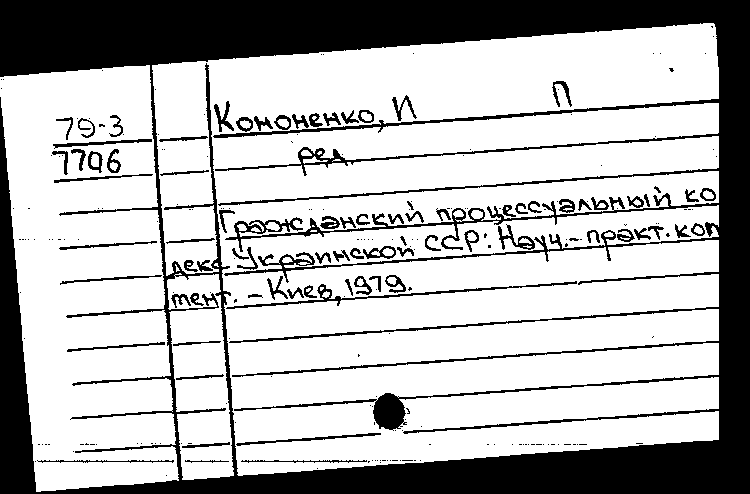 79-3
7706
Кононенко, И П
ред.
Гражданский процессуальный ко
декс Украинской ССР: Науч.-практ. ком
мент. – Киев, 1979.